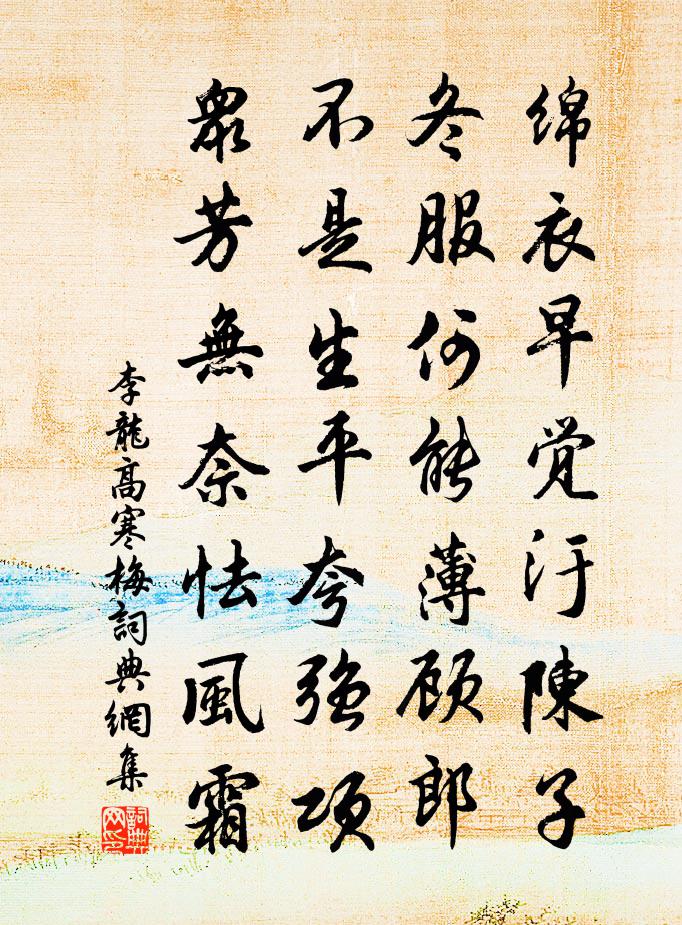 绵衣早觉汙陳子
冬服何能薄顾郎
不是生平夸強项
衆芳無奈怯風霜
李龍高寒梅詞典網集
詞典
网印